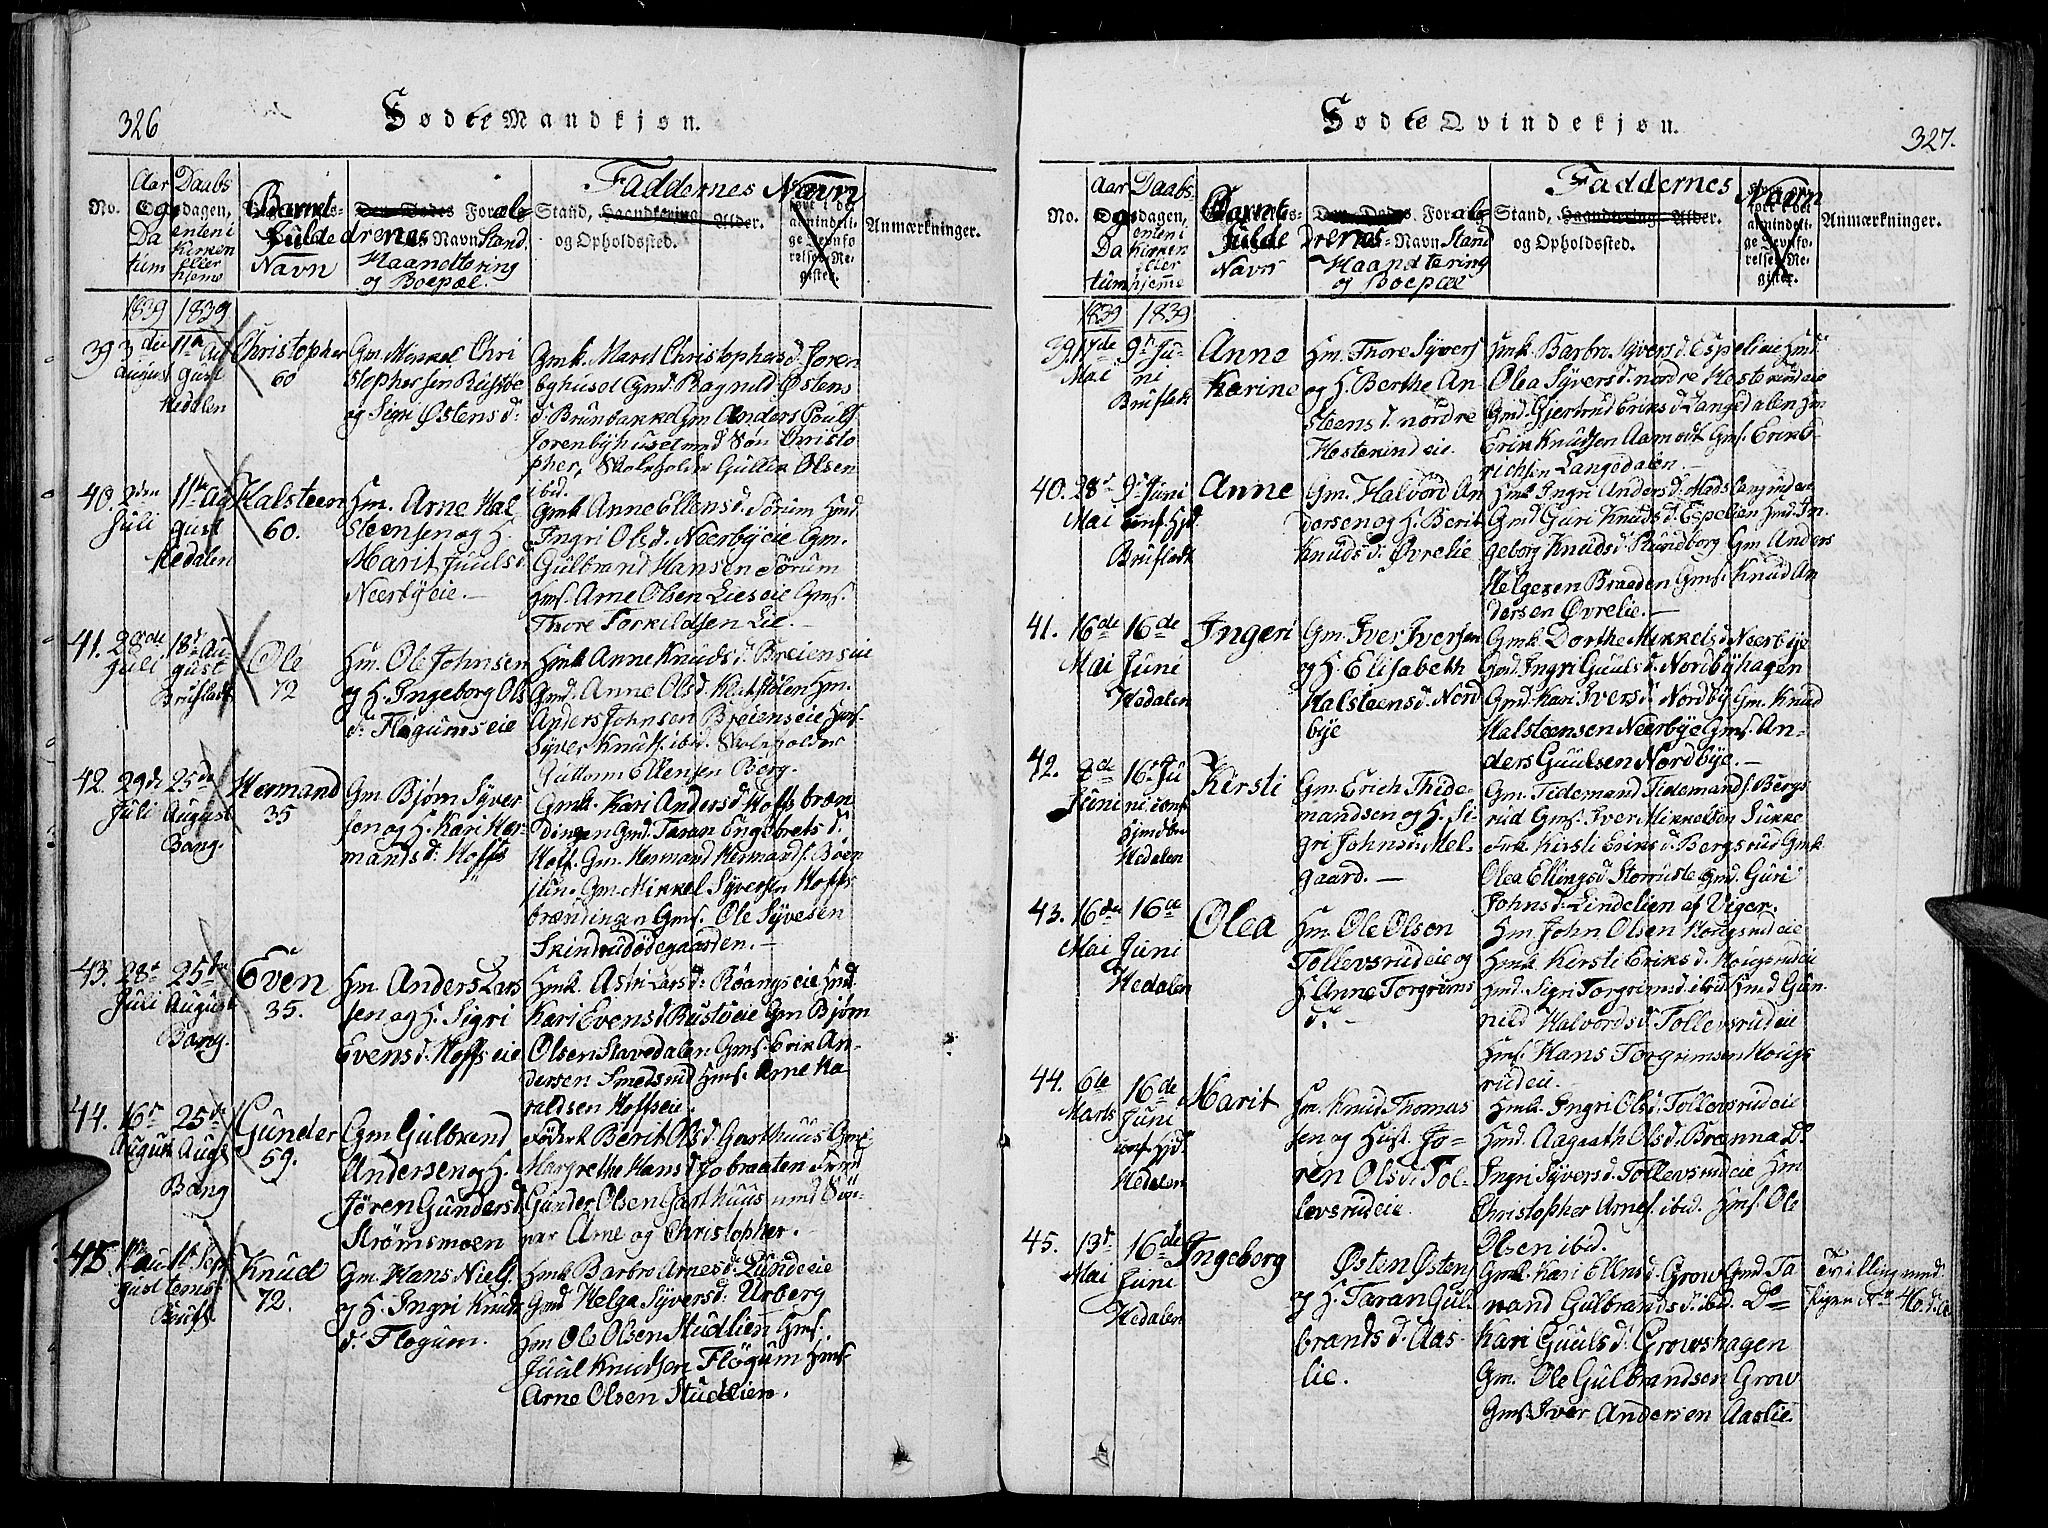 326
Födte Mandkjøn.
No.
Aar Og Datum
Daabsdagen, enten i Kirken eller hjemme
Barnets fulde Navn
Forældrenes Navn Stand Haandtering og Boepæl.
Faddernes Navn
Stand, og Opholdssted.
Anmærkninger.
1839 1839
39 3die August
11te August Hedalen
Christopher 60
Gm. Mikkel Chri
stophersen Rustøe
og Sigri Østensd:
Gmk. Marit Christophersd. Joren
byhuset Gmd Ragnild Østens
d. Brunbakke Gm Anders Pouls
Jorenbyhuset med Søn Christo
pher, Skoleholder Gullik Olsen
ibid.
40. 2den Juli
11te August Hedalen
Halsteen 60.
Hm. Arne Hal
steensen og H.
Marit Juulsd.
Neerbyeie.
Gmk Anne Ellensd. Sorum Hmd.
Ingri Olsd. Neerbyeie Gm.
Gulbrand Hansen Sorum
Hms. Arne Olsen Lieseie Gms.
Thore Torkildsen Lie.
41. 28de Juli
18de August Brufladt
Ole 72
Hm. Ole Johnsen
og H. Ingeborg Ols
d. Fløgumseie
Hmk Anne Knudsd. Breienseie
Gmd. Anne Olsd. Klatstølen Hm.
Anders Johnsen Breienseie Hms.
Syver Knuts. ibid. Skoleholder
Guttorm Ellensen Berg.
42. 29de Juli
25de August Bang.
Hermand 35
Gm. Bjørn Syver
sen og H. Kari Her
mandsd: Hoffs
Gmk. Kari Andersd Hoffsbræn
dingen Gmd. Taran Engebretsd.
Hoff. Gm. Hermand Hermands. Bøen
Gm. Mikkel Syversen Hoffs
brændingen Gms. Ole Syvesen
Skindrudødegaarden.
43. 28de Juli
25de August Bang.
Even 35.
Hm. Anders Lars
sen og H. Sigri
Evensd. Hoffseie
Hmk. Astri Larsd: Røangseie Hmd.
Kari Evensd Rustøeie Gm Bjørn
Olsen Stavedalen Gms. Erik An
dersen Smedsrud Hms. Arne Ha
raldsen Hoffseie.
44. 16de August
25de Augt Bang
Gunder 59.
Gm Gulbrand
Andersen og H.
Jøren Gundersd.
Strømsmoen
Berit Olsd. Garthuus
Margrethe Hansd Jobraaten
Gunder Olsen Garthuus med Søn
ner Arne og Christopher.
45 1te August
1te September Brufl.
Knud 72.
Gm. Hans Niels.
og H. Ingri Knuts
d. Fløgum.
Hmk Barbro Arnesd. Lundeeie
Gmd Helga Syversd. Urberg
Hm Ole Olsen Studlien Hms.
Juul Knudsen Fløgum Hms.
Arne Olsen Studlien.
327.
Födte Qvindekjøn.
No.
Aar Og Datum
Daabsdagen, enten i Kirken eller hjemme
Barnets fulde Navn
Forældrenes Navn Stand Haandtering og Boepæl
Faddernes Navn
Stand, og Opholdssted.
Anmærkninger.
1839 1839
39 Mai
9de Juni Bruflat
Anne Karine
Hm. Thore Syvers
og H. Berthe An
steensd. nordre
Hesterindeie.
Hmk Barbro Syversd. Espelieie Hmd.
Olea Syversd. nordre Hesterindeie
Gmd. Gjertrud Eriksd. Langedalen Hm
Erik Knudsen Aamodt Gms. Erik E
richsen Langedalen.
40. 28de Mai
9de Juni conf. Hjd. Brufladt
Anne
Gm. Halvord An
dersen og H. Berit
Knudsd: Øvrelie
Hmk Ingri Andersd.
Gmd Guri Knudsd. Espelien Hmd. In
geborg Knudsd. Gm. Anders
Helgesen Braaden Gms. Knud An
dersen Øvrelie.
41. 16de Mai
16de Juni Hedalen
Ingeri
Gm. Iver Iversen
og H. Elisabeth
Halsteensd. Nord
bye
Gmk. Dorthe Mikkelsd. Neerbye
Gmd. Ingri Guulsd. Nordbyhagen
Gmd. Kari Iversd. Nordby Gm. Knud
Halsteensen Neerbye Gms. An
ders Guulsen Nordbye.
42. 2de Juni
16de Juni conf. Hjmdbn Hedalen
Kirsti
Gm. Erich Thide
mandsen og H. Si
gri Johnsd. Mel
gaard.
Gm. Tidemand Tidemands. Bergs
rud Gms. Iver Mikkelsen Sukke
Kirsti Eriksd. Bergsrud Gmk
Olea Ellingsd Storruste Gmd. Guri
Johnsd. Lindelien af Viger.
43. 16de Mai
16de Juni Hedalen
Olea
Hm. Ole Olsen
Tollevsrudeie og
H. Anne Torgrims
d.
Hm John Olsen Hougsrudeie
Hmk. Kirsti Eriksd. Hougsrudeie
Hmd. Sigri Torgrimsd. ibid. Hmd Gun
nild Halvordsd. Tollevsrudeie
Hms. Hans Torgrimsen Hougs
rudeie.
44. 6te Marts
16de Juni conf. Hjd. Hedalen
Marit
Hm. Knud Thomas
sen og Hust. Jo
ren Olsd. Tol
levsrudeie.
Hmk. Ingri Olsd. Tollevsrudeie
Hmd. Aagaath Olsd. Brænna Do
Ingri Syversd. Tollevsrudeie Hm
Christopher Arnes. ibid. Hms. Ole
Olsen ibid.
45. 13de Mai
16de Juni Hedalen
Ingeborg
Østen Østens
og H. Taran Gul
brandsd. Aas
lie.
Gmk. Kari Ellensd. Grow Gmd Ta
rand Gulbrandsd. ibid. Do
Kari Guulsd. Growshagen
Gm. Ole Gulbrandsen Grow
Gms. Iver Andersen Aaslie.
Tvilling med
Pigen No 46. d. A.